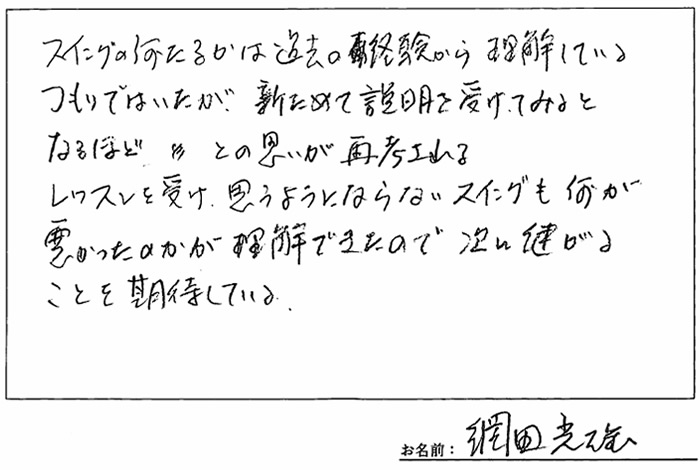 スイングの何たるかは過去の経験から理解している
つもりではいたが、新ためて説明を受けてみると
なるほど〃との思いが再考される
レッスンを受け、思うようにならないスイングも何が
悪かったのかが理解できたので次に継がる
ことを期待している。
お名前： 網田光雄